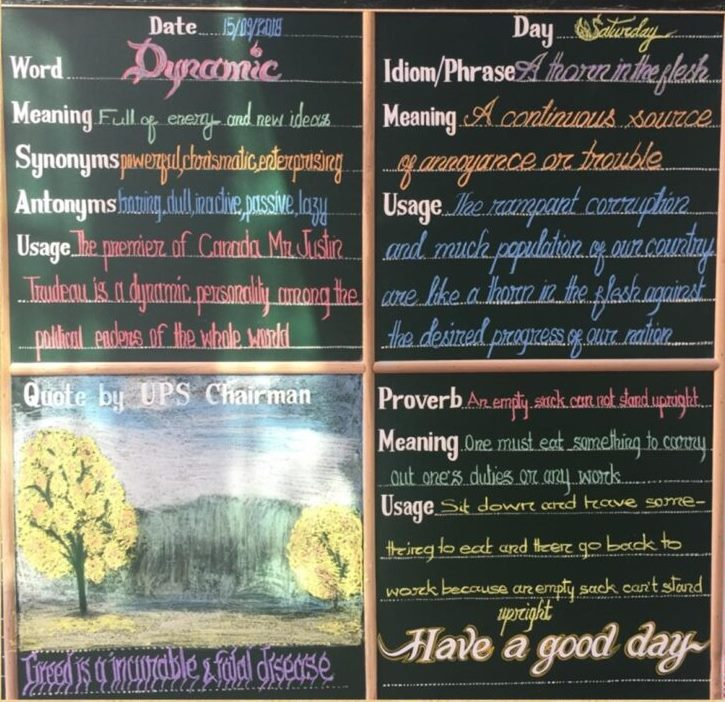 Date 15/09/2018
Word Dynamic
Meaning Full of enery and new ideas
Synonyms powerful, chrismatic, enterprising
Antonyms boring, dull, inactive, passive, lazy
Usage The premier of Canada Mr. Justin
Trudeau is a dynamic personality among the
political eaders of the whole world
Day Saturday
Idiom/Phrase A thorn in the flesh
Meaning A continuous source
of annoyance or trouble
Usage The rampant corruption
and much population of our country
are like a thorn in the flesh against
the desired progress of our nation
Quote by UPS Chairman
Greed is a incurable & fatal disease
Proverb An empty sack can not stand upright.
Meaning One must eat something to carry
out one's duties or any work
Usage Sit down and have some-
thing to eat and then go back to
work because an empty sack can't stand
upright
Have a good day